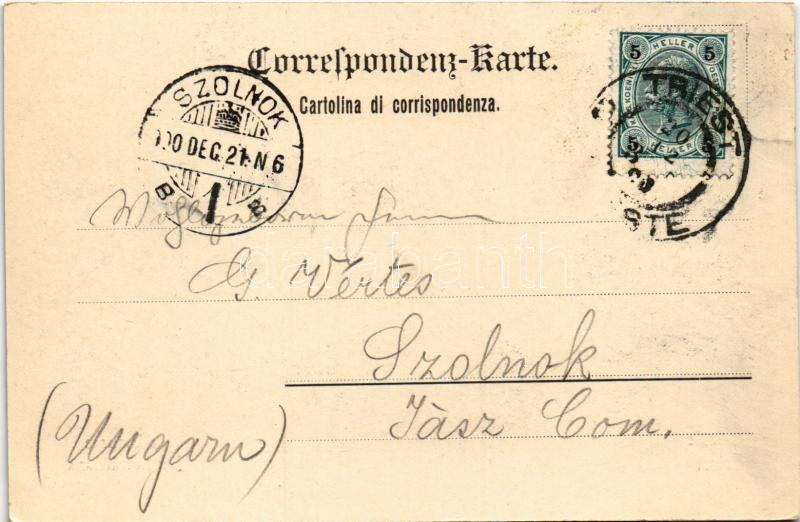 Correspondenz-Karte.
Cartolina di corrispondenza.
SZOLNOK
900 DEC. 21. N 6
B 1 B
5 HELLER 5
5 HELLER 5
TRIEST
20
12
00
TRIESTE
Wohlgeboren Herrn
G. Vértes
Szolnok
Jász Com.
(Ungarn)
darabanth